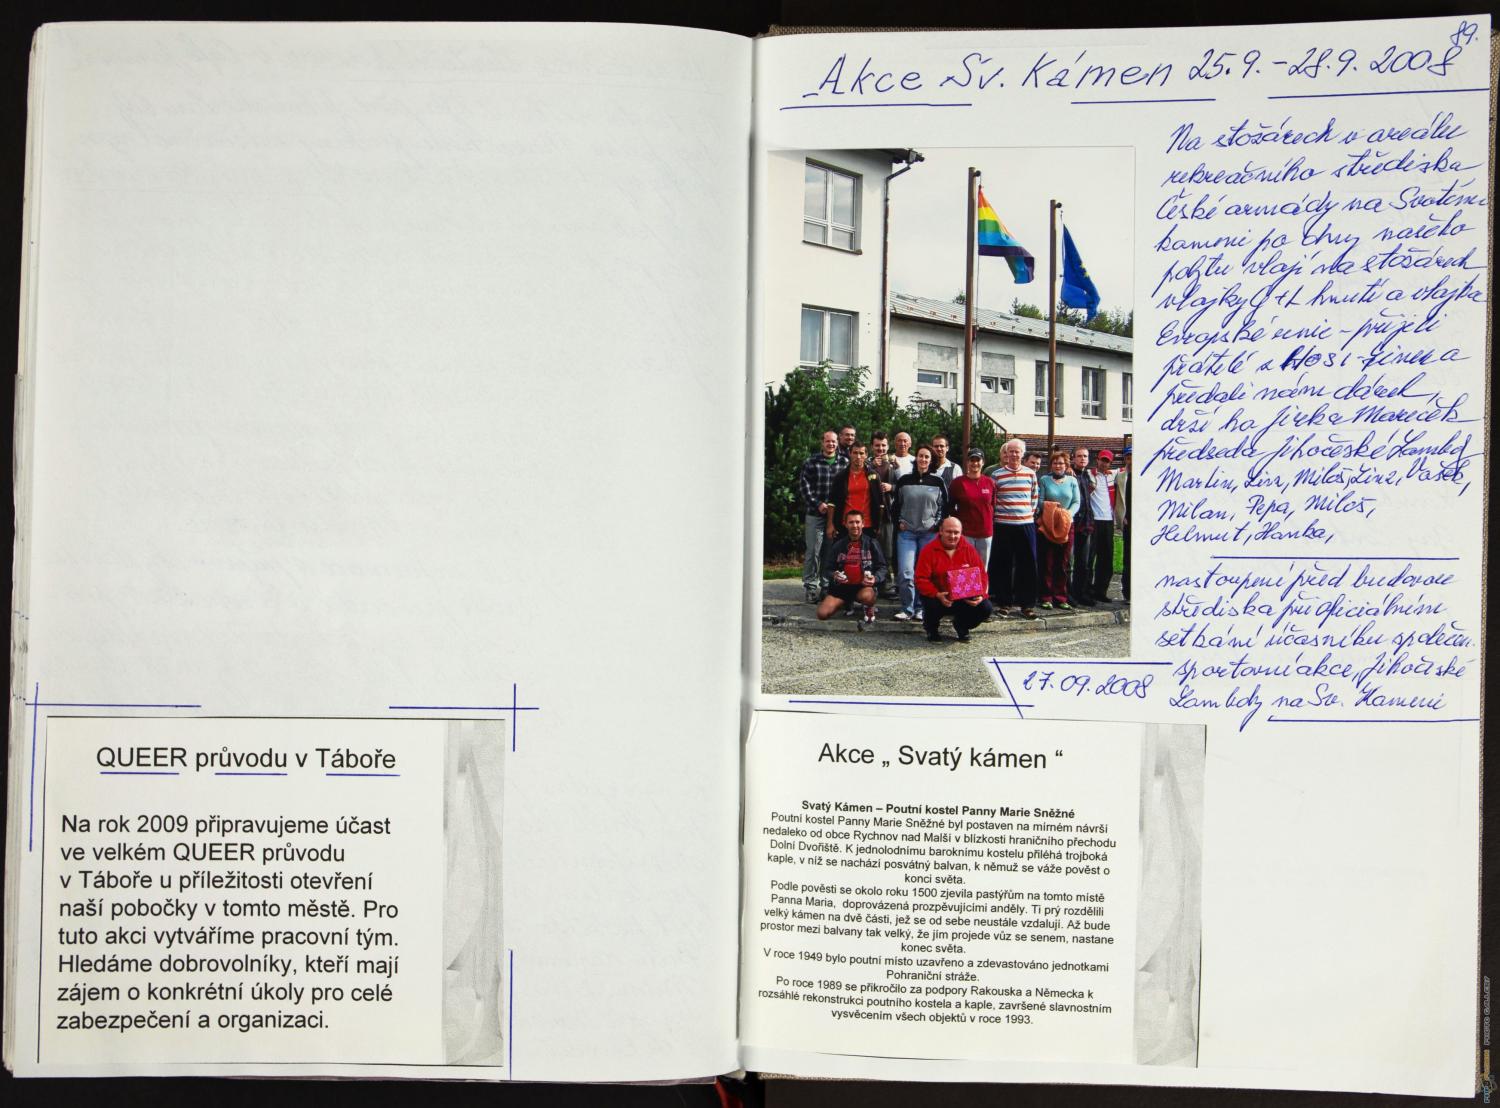 QUEER průvodu v Táboře
Na rok 2009 připravujeme účast
ve velkém QUEER průvodu
v Táboře u příležitosti otevření
naší pobočky v tomto městě. Pro
tuto akci vytváříme pracovní tým.
Hledáme dobrovolníky, kteří mají
zájem o konkrétní úkoly pro celé
zabezpečení a organizaci.
89.
Akce Sv. Kámen 25.9.-28.9.2008
Na stožárech v areálu
rekreačního střediska
České armády na Svatém
kameni po dny našeho
pobytu vlají na stožárech
vlajky G+L hnutí a vlajka
Evropské unie - přijeli
přátelé z HOSI-Linz a
předali nám dárek,
drží ho Jirka Mareček
předseda Jihočeské Lambdy
Martin, Linz, Miloš, Linz, Vašek,
Milan, Pepa, Miloš,
Helmut, Hanka,
nastoupeni před budovou
střediska při oficiálním
setkání účastníků společen.
sportovní akce, Jihočeské
Lambdy na Sv. Kameni
27.09.2008
Akce „ Svatý kámen “
Svatý Kámen – Poutní kostel Panny Marie Sněžné
Poutní kostel Panny Marie Sněžné byl postaven na mírném návrší
nedaleko od obce Rychnov nad Malší v blízkosti hraničního přechodu
Dolní Dvořiště. K jednolodnímu baroknímu kostelu přiléhá trojboká
kaple, v níž se nachází posvátný balvan, k němuž se váže pověst o
konci světa.
Podle pověsti se okolo roku 1500 zjevila pastýřům na tomto místě
Panna Maria, doprovázená prozpěvujícími anděly. Ti prý rozdělili
velký kámen na dvě části, jež se od sebe neustále vzdalují. Až bude
prostor mezi balvany tak velký, že jím projede vůz se senem, nastane
konec světa.
V roce 1949 bylo poutní místo uzavřeno a zdevastováno jednotkami
Pohraniční stráže.
Po roce 1989 se přikročilo za podpory Rakouska a Německa k
rozsáhlé rekonstrukci poutního kostela a kaple, završené slavnostním
vysvěcením všech objektů v roce 1993.